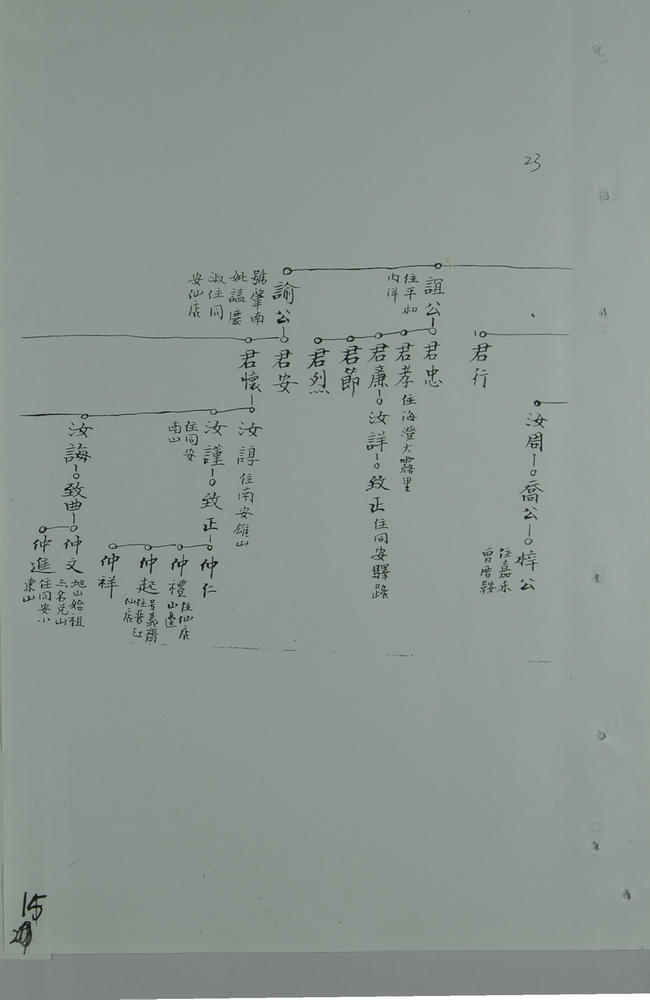 23
誼公
住平和
內洋
諭公
號肇南
妣諡慶
淑住同
安仙店
君行
君忠
君孝
住海澄大霧里
君廉
汝詳
致正
住同安驛路
君節
君烈
君安
君懷
汝周
喬公
梓公
住嘉禾
曾厝鞍
汝諄
住南安雄山
汝謹
住同安
南山
致正
仲仁
仲禮
住仙店
山邊
仲起
号義齋
住晋江
仙店
仲祥
汝誨
致曲
仲文
地山始祖
又名兑山
仲進
住同安小
東山
15